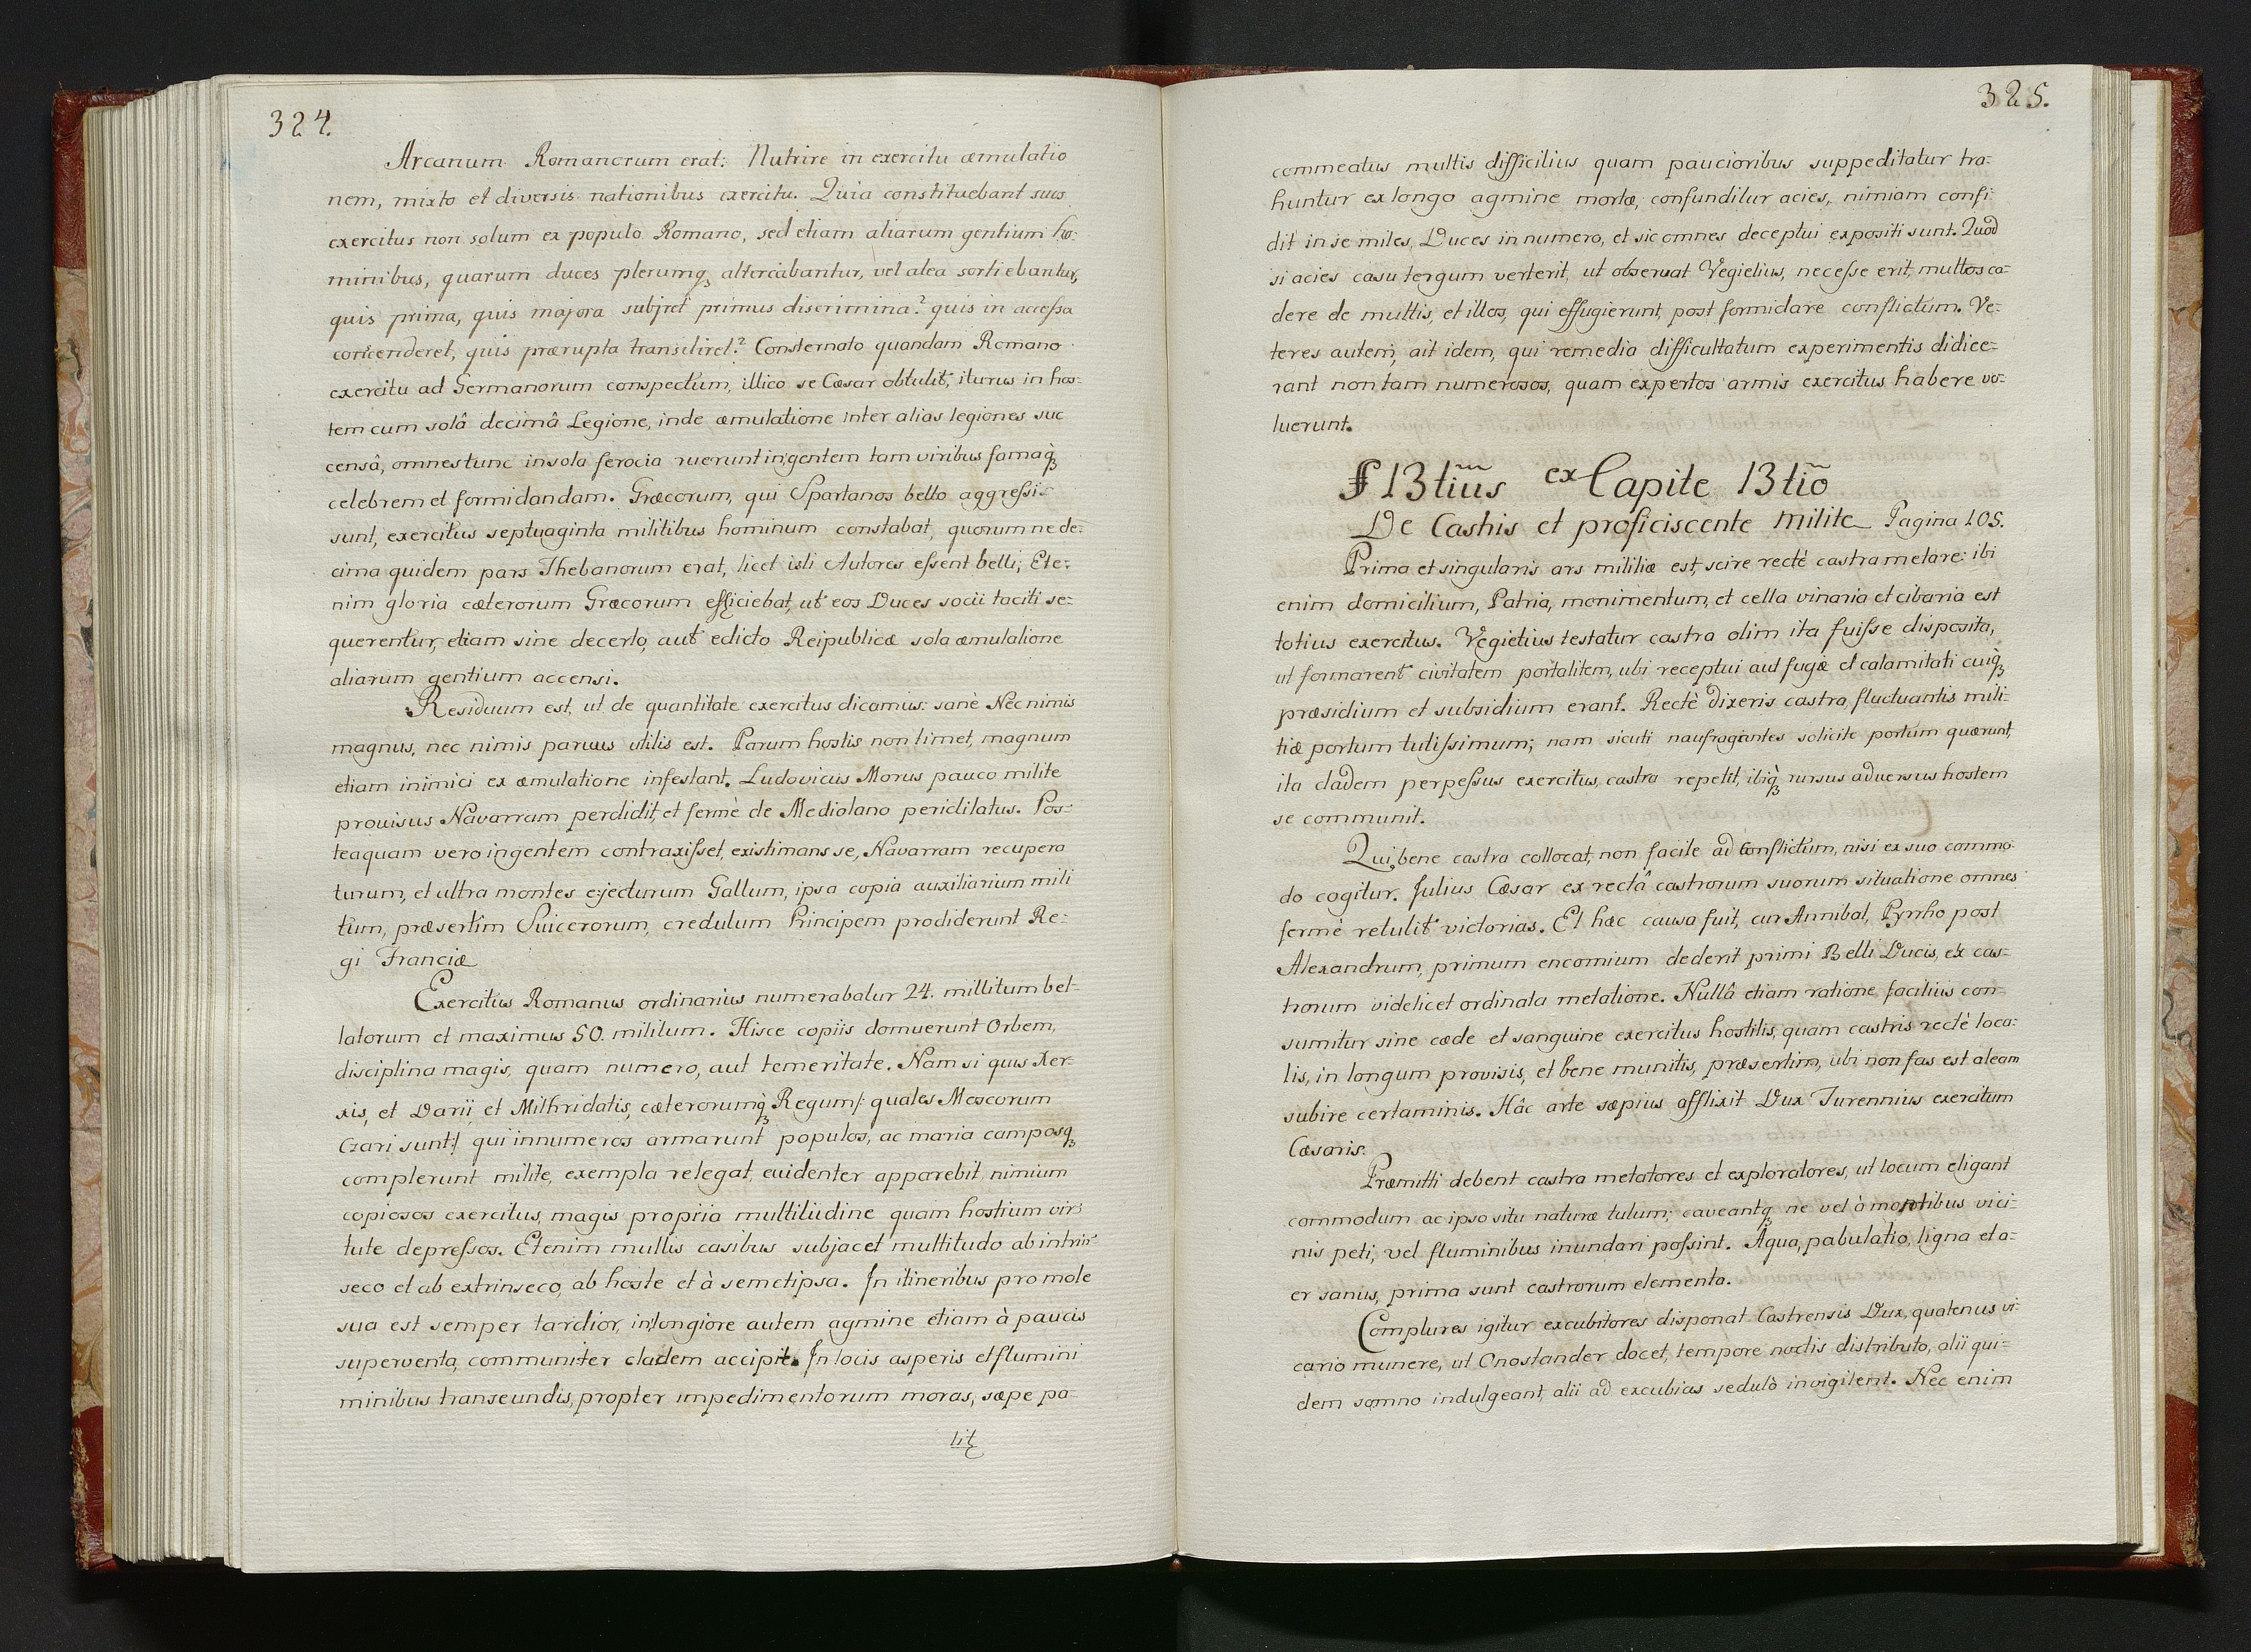 324.
Arcanum Romanorum erat: Nutrire in exercitu æmulatio
nem, mixto et diversis nationibus exercitu. Quia constituebant suos
exercitus non solum ex populo Romano, sed etiam aliarum gentium ho:
minibus, quarum duces plerumq₃ altercabantur, vel alea sortiebantur,
quis prima, quis majora subjret primus discrimina? quis in accessa
concenderet, quis prærupta transiliret? Consternato quandam Romano
exercitu ad Germanorum conspectum, illico se Cæsar obtulit, iturus in hos:
tem cum solâ decimâ Legione, inde æmulatione inter alias legiones suc
censâ, omnes tunc insola ferocia ruerunt in gentem tam viribus famaq̀₃
celebrem et formidandam. Græcorum, qui Spartanos bello aggressi
sunt, exercitus septuaginta militibus hominum constabat, quorum ne de:
cima quidem pars Thebanorum erat, licet isti Autores essent belli; Ete:
nim gloria cæterorum Græcorum efficiebat, ut eos Duces socii taciti se:
querentur, etiam sine decerto, aut edicto Reipublicæ sola æmulatione
aliarum gentium accensi.
Residuum est, ut de quantitate exercitus dicamus: sanè Nec nimis
magnus, nec nimis parvus utilis est. Parum hostis non timet, magnum
etiam inimici ex æmulatione infestant. Ludovicus Morus pauco milite
provisus Navarram perdidit, et fermè de Mediolano periclitatus. Pos:
teaquam vero ingentem contraxisset, existimans se, Navarram recupera
turum, et ultra montes ejecturum Gallum, ipsa copia auxiliarium mili
tum, præsertim Suicerorum, credulum Principem prodiderunt Re:
gi Franciæ
Exercitus Romanus ordinarius numerabatur 24. millitum bel-
latorum et maximus 50. militum. Hisce copiis domuerunt Orbem,
disciplina magis, quam numero, aut temeritate. Nam si quis Xer-
xis, et Darij et Mithridatis, cæterorumq̀₃ Regum /: quales Moscorum
Czari sunt :/ qui innumeros armarunt populos, ac maria camposq₃
complerunt milite, exempla relegat, evidenter apparebit nimium
copiosos exercitus magis propria multitudine quam hostium vir:
tute depressos. Etenim multis casibus subjacet multitudo ab intrin:
seco et ab extrinseco, ab hoste et à semetipsa. In itineribus pro mole
sua est semper tardior, in longiore autem agmine etiam à paucis
superventa, communiter cladem accipit. In locis asperis et flumini
minibus transeundis, propter impedimentorum moras, sæpe pa-
tit
325.
commeatus multis difficilius quam paucioribus suppeditatur tra:
huntur ex longo agmine morlæ, confunditur acies, nimiam confi:
dit in se miles, Duces in numero, et sic omnes deceptui expositi sunt. Quod
si acies casu tergum verterit, ut observat Vegietius, necesse erit, multos ca=
dere de multis, et illos, qui effugierunt, post formidare conflictum. Ve:
teres autem, ait idem, qui remedia difficultatum experimentis didice:
rant non tam numerosos, quam expertos armis exercitus habere vo:
luerunt.
§ 13tiũs ex Capite 13tiõ
De Castris et proficiscente Milite Pagina 105.
Prima et singularis ars militiæ est, scire rectè castra metare: ibi
enim domicilium, Patria, monimentum, et cella vinaria et cibaria est
totius exercitus. Vegietius testatur castra olim ita fuisse disposita,
ut formarent civitatem portalitem, ubi receptui aut fugæ et calamitati cuiq̀₃
præsidium et subsidium erant. Rectè dixeris castra, fluctuantis mili:
tiæ portum tutissimum; nam sicuti naufragantes solicite portum quærunt,
ita cladem perpessus exercitus, castra repetit, ibiq̀₃ rursus adversus hostem
se communit.
Qui bene castra collocat, non facile ad conflictum, nisi ex suo commo:
do cogitur. Julius Cæsar ex rectâ castrorum suorum situatione omnes
fermè retulit victorias. Et hæc causa fuit, cur Annibal, Pyrrho post
Alexandrum, primum encomium dederit primi Belli Ducis, ex cas:
trorum videlicet ordinata metatione. Nullâ etiam ratione facilius con:
sumitur sine cæde et sanguine exercitus hostilis, quam castris rectè loca:
tis, in longum provisis, et bene munitis, præsertim, ubi non fas est aleam
subire certaminis. Hâc arte sæpius afflixit Dux Turennius exercitum
Cæsaris.
Præmitti debent castra metatores et exploratores, ut locum eligant
commodum ac ipso situ naturæ tutum; caveantq₃ ne vel à montibus vici:
nis peti, vel fluminibus inundari possint. Aqua, pabulatio, ligna et a:
er sanus, prima sunt castrorum elementa.
Complures igitur excubitores disponat Castrensis Dux, quatenus vi:
cario munere, ut Onostander docet, tempore noctis distributo, alii qui:
dem somno indulgeant, alii ad excubias sedulò invigilent. Nec enim